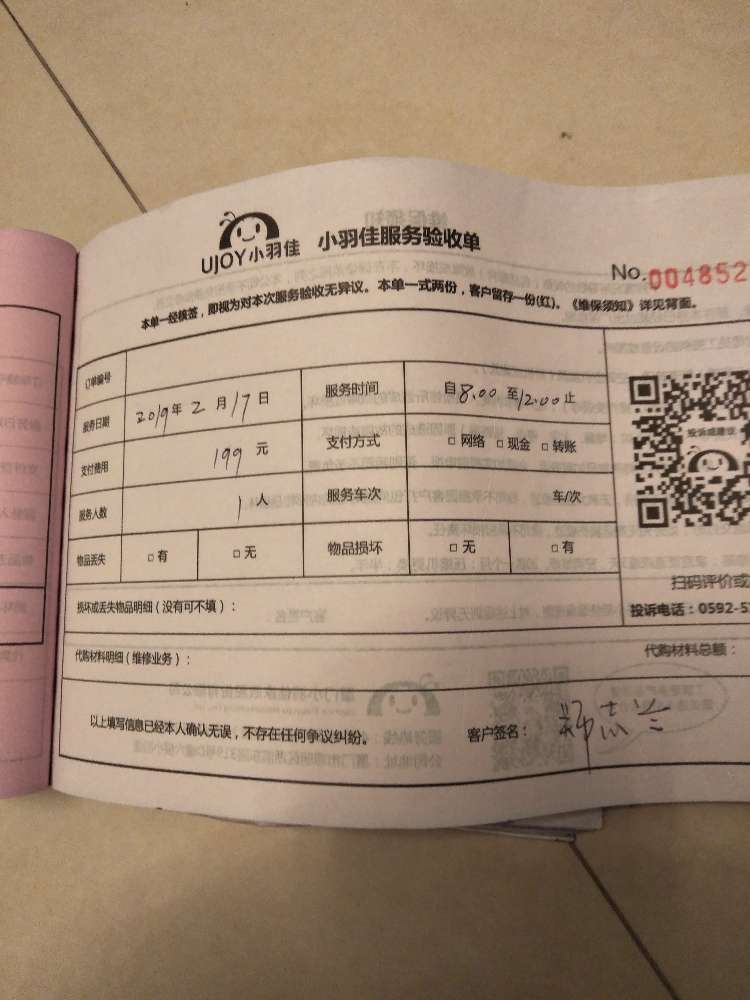 UJOY小羽佳 小羽佳服务验收单
No.004852
本单一经核签，即视为对本次服务验收无异议。本单一式两份，客户留存一份(红)。《维保须知》详见背面。
订单编号
服务日期 2019年 2 月 17 日 服务时间 自8.00至12.00止
支付费用 199 元 支付方式 □网络 □现金 □转账
服务人数 1 人 服务车次 车/次
物品丢失 □有 □无 物品损坏 □无 □有
投诉或建议
扫码评价或
投诉电话：0592-5
损坏或丢失物品明细（没有可不填）：
代购材料明细（维修业务）： 代购材料总额：
以上填写信息已经本人确认无误，不存在任何争议纠纷。 客户签名：